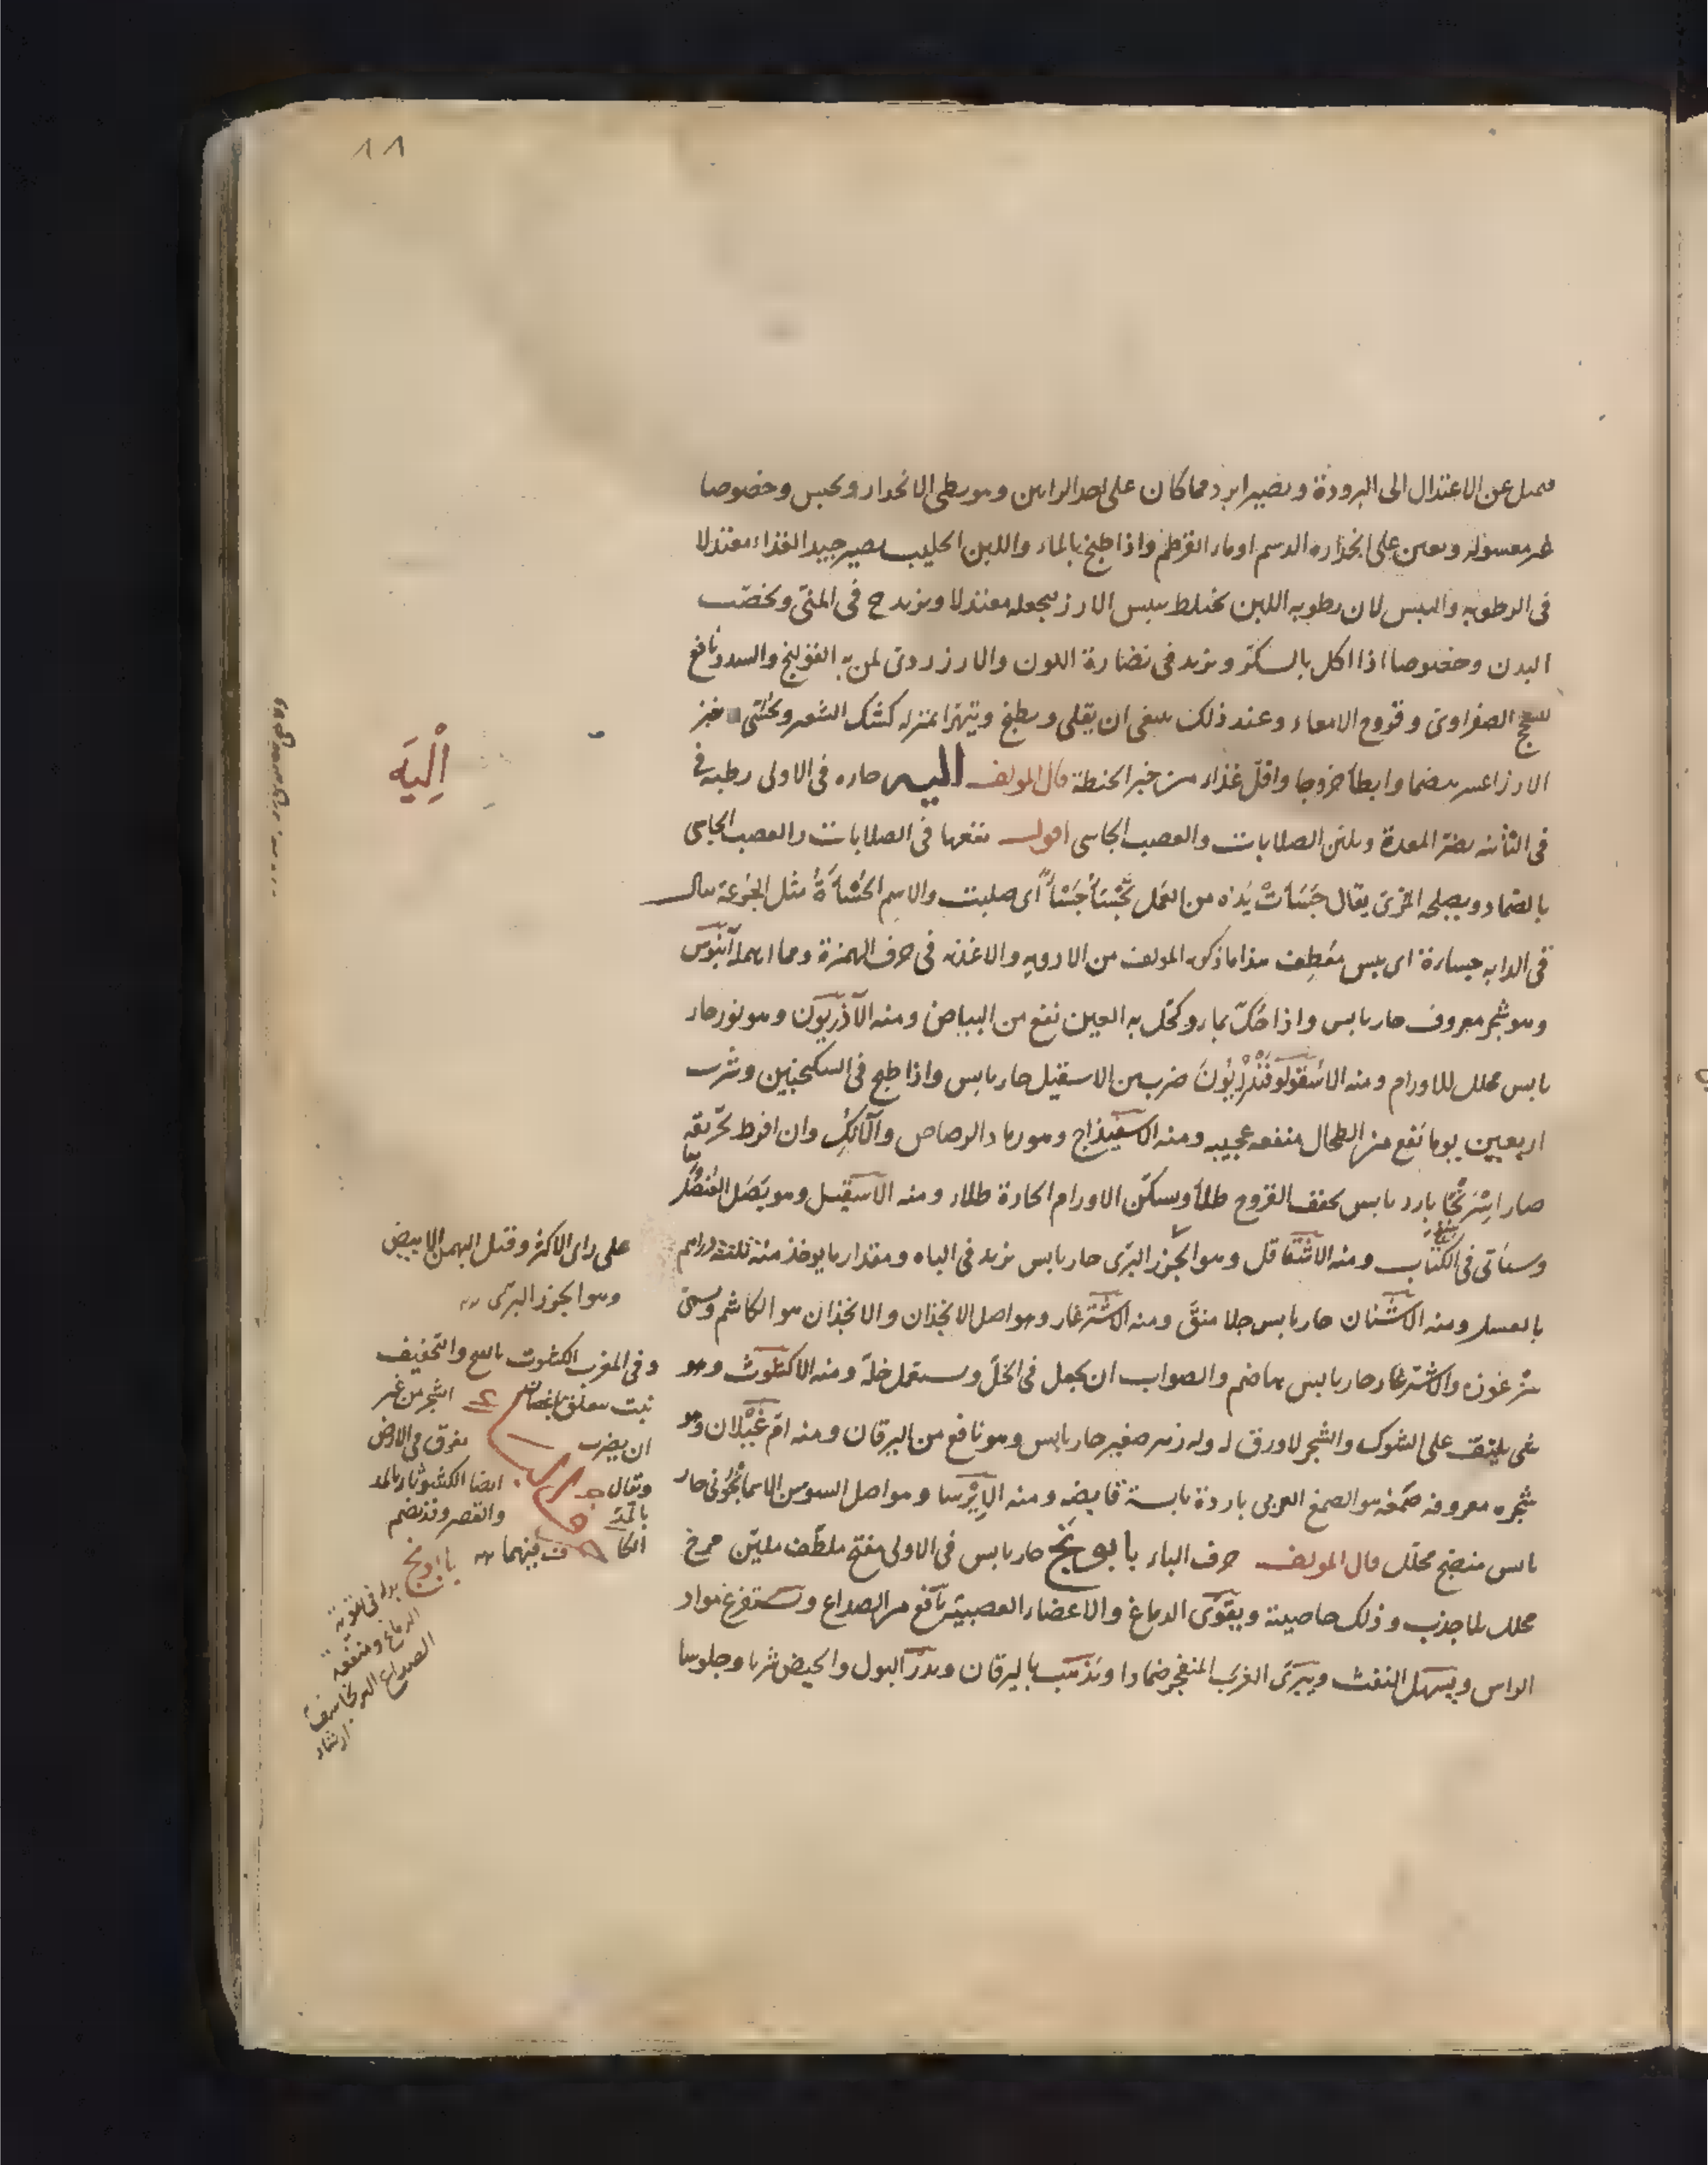 ١١
فيميل عن الاعتدال الى البرودة ويصير ابرد مما كان على احد الرايين وهو بطى الانحدار ويحبس وخصوصا
غير مغسوله ويعين على انحداره الدسم او ماء القرطم واذا طبخ بالماء واللبن الحليب يصير جيد الغذاء معتدلا
فى الرطوبه واليبس لان رطوبه اللبن تختلط بيبس الارز فيجعله معتدلا ويزيد ح فى المنى ويخصب
البدن وخصوصا اذا اكل بالسكر ويزيد فى نضارة اللون والارز ردئ لمن به القولنج والسدد ونافع
للسحج الصفراوى وقروح الامعاء وعند ذلك ينبغى ان يقلى ويطبخ ويتهرا بمنزله كشك الشعير ويحسى خبز
الارز اعسر هضما وابطأ خروجا واقل غذاء من خبز الحنطة قال المولف اليه حاره فى الاولى رطبه فى
فى الثانيه يضر المعدة ويلين الصلابات والعصب الجاسى اقول نفعها فى الصلابات والعصب الجاسى
بالضماد ويصلحه الخزى يقال جَسَأَتْ يَدُه من العمل تَجْسَأُ جَسْأً اى صلبت والاسم الجُسْأَةُ مثل الجرعة يقال
فى الدابه جساءة اى يبس معطف هذا ما ذكره المولف من الادويه والاغذيه فى حرف الهمزة ومما اهمله آبنوس
وهو شجر معروف حار يابس واذا حُكّ بماء وكحل به العين نفع من البياض ومنه الآذريون وهو نور حار
يابس محلل للاورام ومنه الاسقولوفندريون ضرب من الاسقيل حار يابس واذا طبخ فى السكنجبين وشرب
اربعين يوما نفع من الطحال منفعه عجيبه ومنه الاسفيذاج وهو رماد الرصاص والآنك وان افرط تحريقه
صار اسْرنجًا بارد يابس يجفف القروح طلأ ويسكن الاورام الحارة طلاء ومنه الاسقيل وهو بَصَل العُنصُل
وسيأتى فى الكتاب ومنه الاشقاقل وهو الجزر البرى حار يابس يزيد فى الباه ومقدار ما يوخذ منه ثلثة دراهم
بالعسل ومنه الاشنان حار يابس جلا منقّ ومنه الاشترغار وهو اصل الانجذان والانجذان هو الكاشم ويسمى
شترغوزه والاشترغار حار يابس هاضم والصواب ان يجعل فى الخلّ ويستعمل خلّه ومنه الاكشوث وهو
شى يلتف على الشوك والشجر لا ورق له وله زهر صغير حار يابس وهو نافع من اليرقان ومنه امّ غيلان وهو
شجره معروفه صمغه هو الصمغ العربى باردة يابسة قابضه ومنه الاِيْرسا وهو اصل السوسن الاسمانجونى حار
يابس منضج محلل قال المولف حرف الباء بابونج حار يابس فى الاولى مفتح ملطّف مليّن مرخ
محلل بلا جذب وذلك خاصيته ويقوّى الدماغ والاعضاء العصبيّة نافع من الصداع ويستفرغ مواد
الراس ويسهل النفث ويبرى الغرب المنفجر ضمادا ويذهب باليرقان ويدرّ البول والحيض شربا وجلوسا
اِلْيَه
على راى الاكثر وقيل البهمن الابيض
وهو الجزر البرى
وفى المغرب الكشوث بالفتح والتخفيف
نبت يتعلق باغصان الشجر من غير
ان يضرب بعرق فى الارض
ويقال ايضا الكشوثاء بالمد
بالمدّ والقصر وقد يضم
الكاف فيهما
بابونج
الدماغ ومنفعته